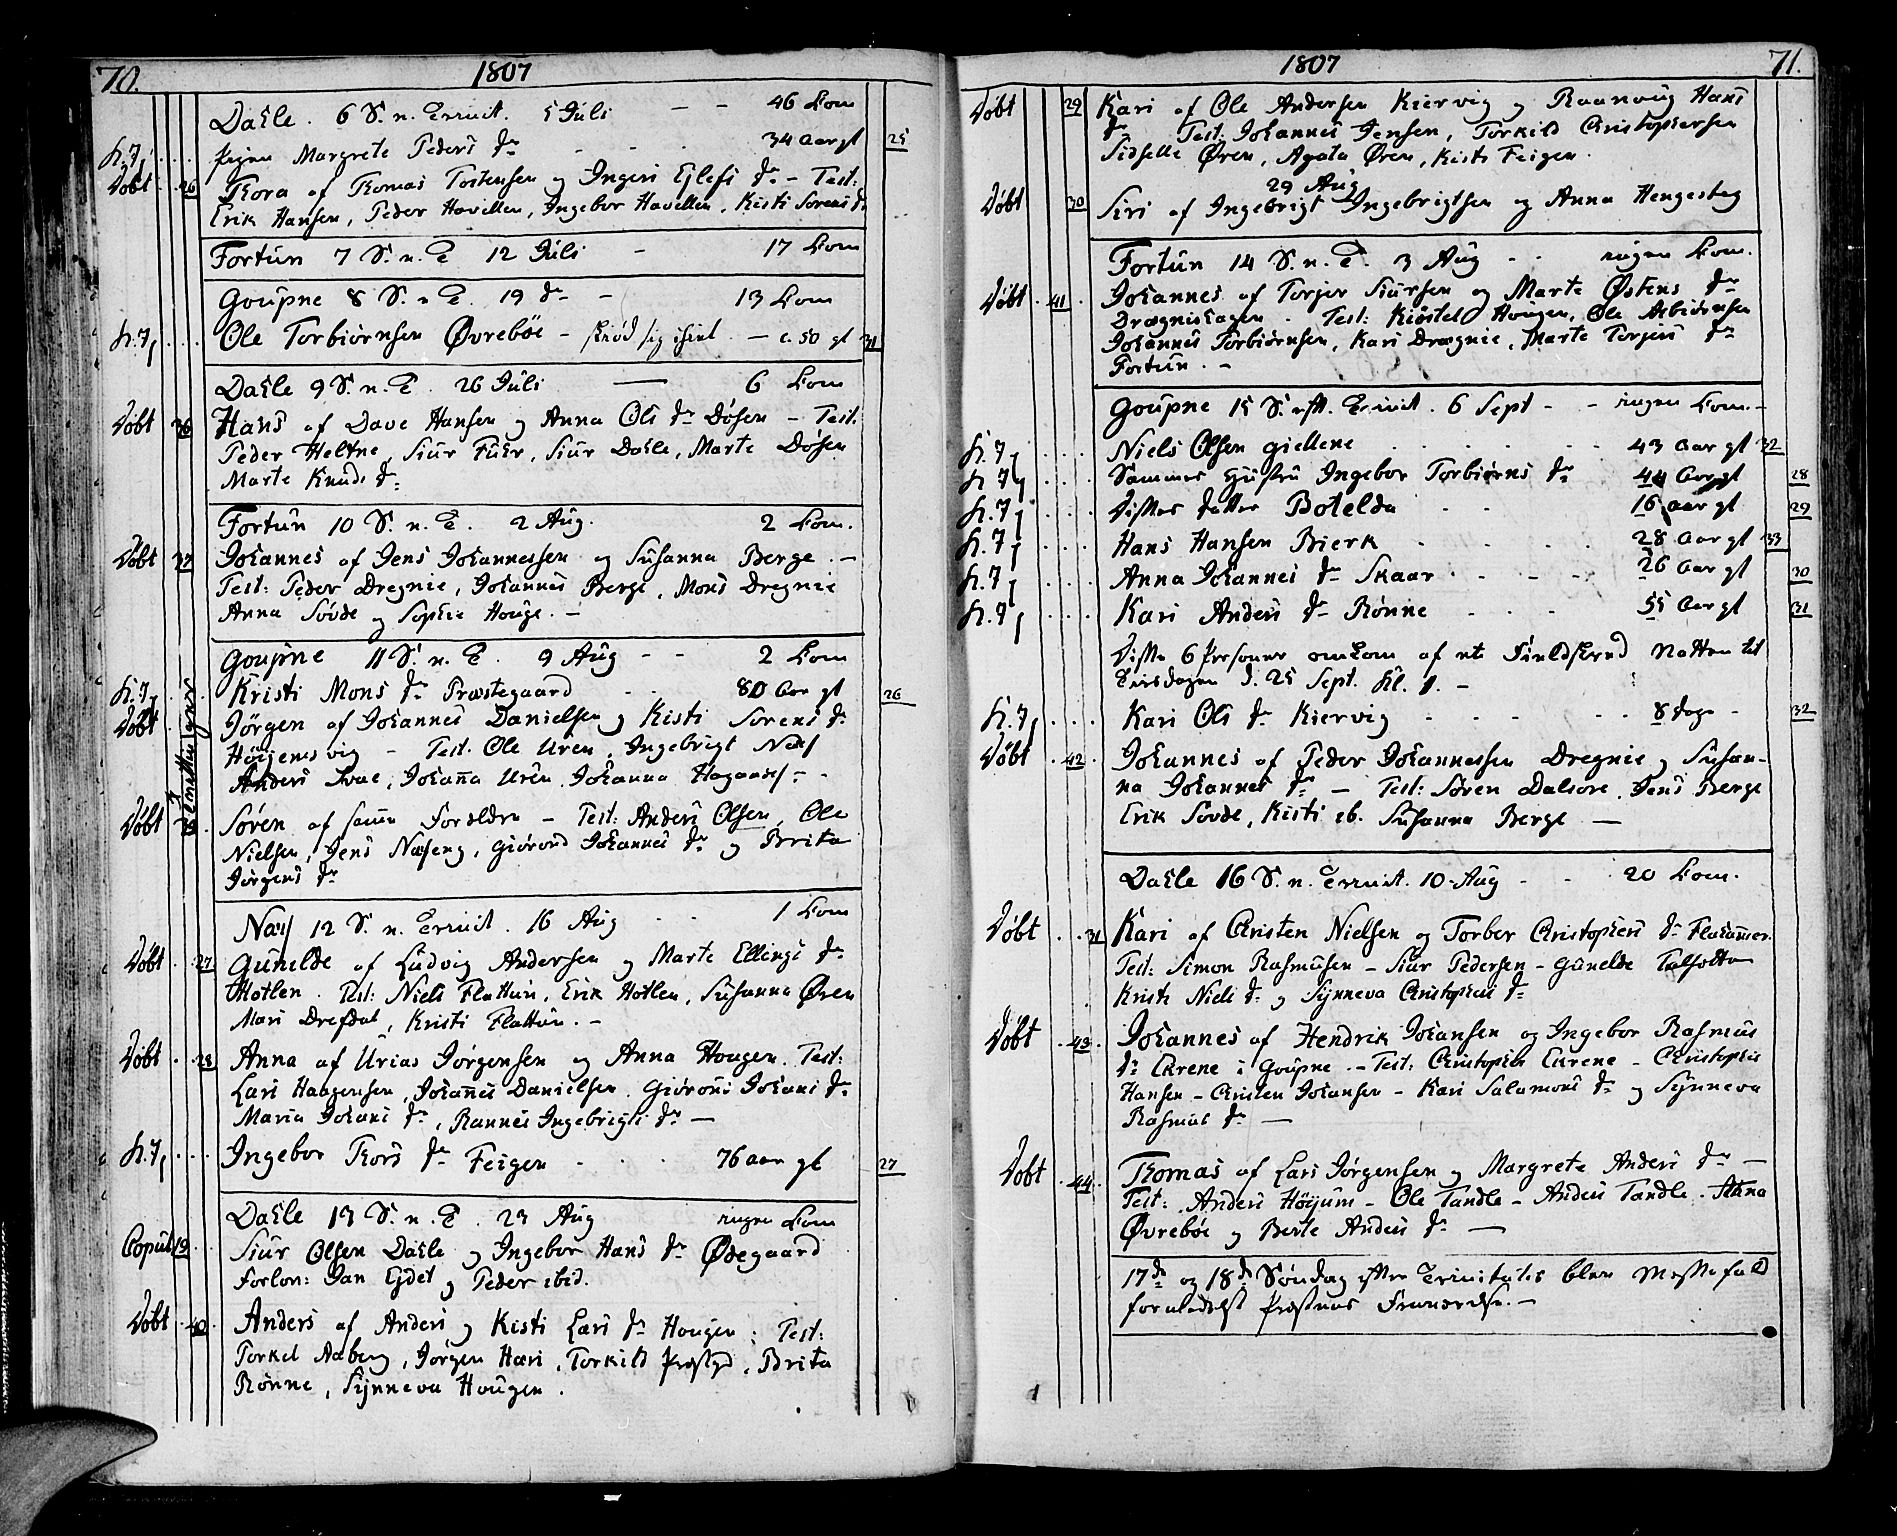 70. 1807
Dahle. 6 S. n. Trinit. 5 Juli - - 46 Com
K. J, Margrete Peders dr - - - 34 Aar gl 25
Døbt 26 Thora af Thomas Tostensen og Ingeri Ejlefs dr - Test:
Erik Hansen, Peder Havellen, Ingebor Havellen, Kisti Sørens dr
Fortun 7 S. n. T 12 Juli - 17 Com
Goupne 8 S. n T. 19 dr - 13 Com
K. J, Ole Torbiørnsen Øvrebøe - - c. 50 gl 31
Dahle 9 S. n. T. 26 Juli — 6 Com
Døbt 36 Hans af Dave Hansen og Anna Ols dr Døsen - Test:
Peder Heltne, Siur Fuhr, Siur Dahle, Marte Døsen
Marte Knuds dr
Fortun 10 S. n. T. 2 Aug. 2 Com.
Døbt 37 Johannes af Jens Johannessen og Susanna Berge. -
Test: Peder Dregnie, Johannes Berge, Mons Dregnie
Anna Sovde og Sophie Houge. -
Goupne 11 S. n. T. 9 Aug - - 2 Com
K. J, Kristi Mons dr Præstegaard 80 Aar gl 26
Døbt Jørgen af Johannes Danielsen og Kisti Sørens dr
Høyjemsvig - Test: Ole Uren, Ingebrigt Næss
Anders Svae, Johanna Uren Johanna Hagaas - -
Døbt Søren af samme Forældre - Test: Anders Olsen, Ole
Nielsen, Jens Næseng, Giørond Johannes dr og Brita
Jørgens dr
Næss 12 S. n. Trinit. 16 Aug - - 1 Com
Døbt 27 Gunilde af Ludvig Andersen og Marte Ellings dr
Hotlen. Test: Niels Flattun, Erik Hotlen, Susanna Øren
Mari Drefdal, Kristi Flattun. -
Døbt 28 Anna af Urias Jørgensen og Anna Hougen. Test:
Lars Haagensen, Johannes Danielsen, Giøroni Johans dr
Maria Johans dr, Rannei Ingebrigts dr —
K. J, Ingebor Thors dr Feigen - - - 76 aar gl 27
Dahle 13 S. n. T. 23 Aug ingen Com
Copul 19 Siur Olsen Dahle og Ingebor Hans dr Ødegaard
Forlon: Jan Ejdet og Peder ibid.
Døbt 40 Anders af Anders og Kisti Lars dr Hougen; Test:
Torkel Aaberg, Jørgen Hæri, Torkild Præstgd, Brita
Rønne, Synneva Hougen.
1807 71.
Døbt 29 Kari af Ole Andersen Kiervig og Raanvug Hans
dr Test: Johannes Jensen, Torkild Christophersen
Sidselle Øren, Agata Øren, Kisti Feigen.
29 Aug
Døbt 30 Siri af Ingebrigt Ingebrigtsen og Anna Hengesteg
Fortun 14 S. n. T. 3 Aug - - ingen Com.
Døbt 41 Johannes af Torjer Siursen og Marte Østens dr
Drægnishagen. Test: Kiøstel Hougen, Ole Asbiørnsen
Johannes Torbiørnsen, Kari Drægnie, Marte Torjers dr
Fortun. -
Goupne 15 S. eft. Trinit. 6 Sept - - ingen Com. -
K. J, Niels Olsen Giellene 43 Aar gl 32
K. J, Sammes Hustru Ingebor Torbiørns dr 44 Aar gl 28
K. J, Disses datter Botelda 16 aar gl 29
K. J, Hans Hansen Bierk 28 Aar gl 33
K. J, Anna Johannes dr Skaar 26 Aar gl 30
K. J, Kari Anders dr Rønne 55 Aar gl 31
Disse 6 Personer omkom af et Fieldskred Natten til
Tirsdagen d. 25 Sept. Kl. 1. -
K. J, Kari Ols dr Kiervig 8 dage 32
Døbt 42 Johannes af Peder Johannessen Dregnie og Susan-
na Johannes dr - Test: Søren Dalsøre, Jens Berge
Erik Sovde, Kisti ib. Susanna Berge —
Dahle 16 S. n. Trinit. 10 Aug - - 20 Com.
Døbt 31 Kari af Christen Nielsen og Torber Christophers dr Flahammer.
Test: Simon Rasmusen - Siur Pedersen - Gunelde
Kristi Niels dr og Synneva Christophers dr
Døbt 43 Johannes af Hendrik Johansen og Ingebor Rasmus
dr i Goupne. - Test: Christopher - Christopher
Hansen - Christen Johansen - Kari Salamons dr og Synneva
Rasmus dr —
Døbt 44 Thomas af Lars Jørgensen og Margrete Anders dr —
Test: Anders Høyum - Ole Tandle - Anders Tandle. Anna
Øvrebøe og Berte Anders dr —
17de og 18de Søndag efter Trinitatis blev Messefald
formedelst Præstens Fraværelse. -